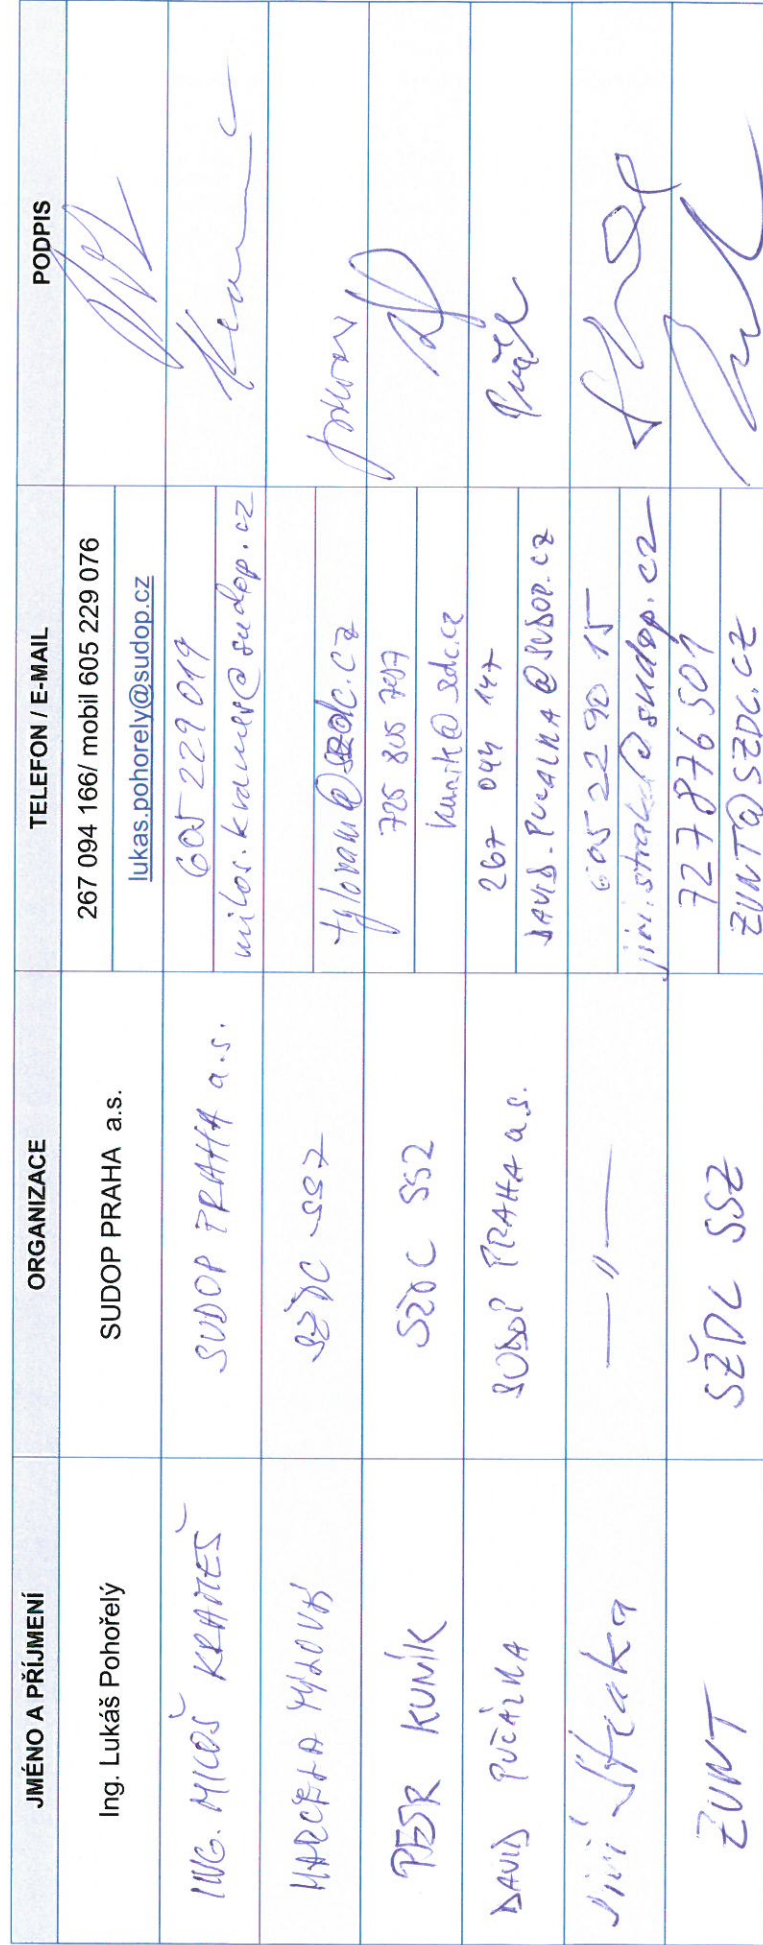 JMÉNO A PŘÍJMENÍ ORGANIZACE TELEFON / E-MAIL PODPIS
Ing. Lukáš Pohořelý SUDOP PRAHA a.s. 267 094 166/ mobil 605 229 076
lukas.pohorely@sudop.cz
ING. MILOŠ KRAMEŠ SUDOP PRAHA a.s. 605 229 019
milos.krames@sudop.cz
MARCELA TYLOVÁ SŽDC SSZ
tylovam@szdc.cz
PETR KUNÍK SŽDC SSZ 725 805 797
kunik@szdc.cz
DAVID PUČALKA SUDOP PRAHA a.s. 267 094 147
DAVID.PUCALKA@SUDOP.CZ
Jiří Straka —〃— 605 22 90 15
jiri.straka@sudop.cz
ZUNT SŽDC SSZ 727 876 501
ZUNT@SZDC.CZ